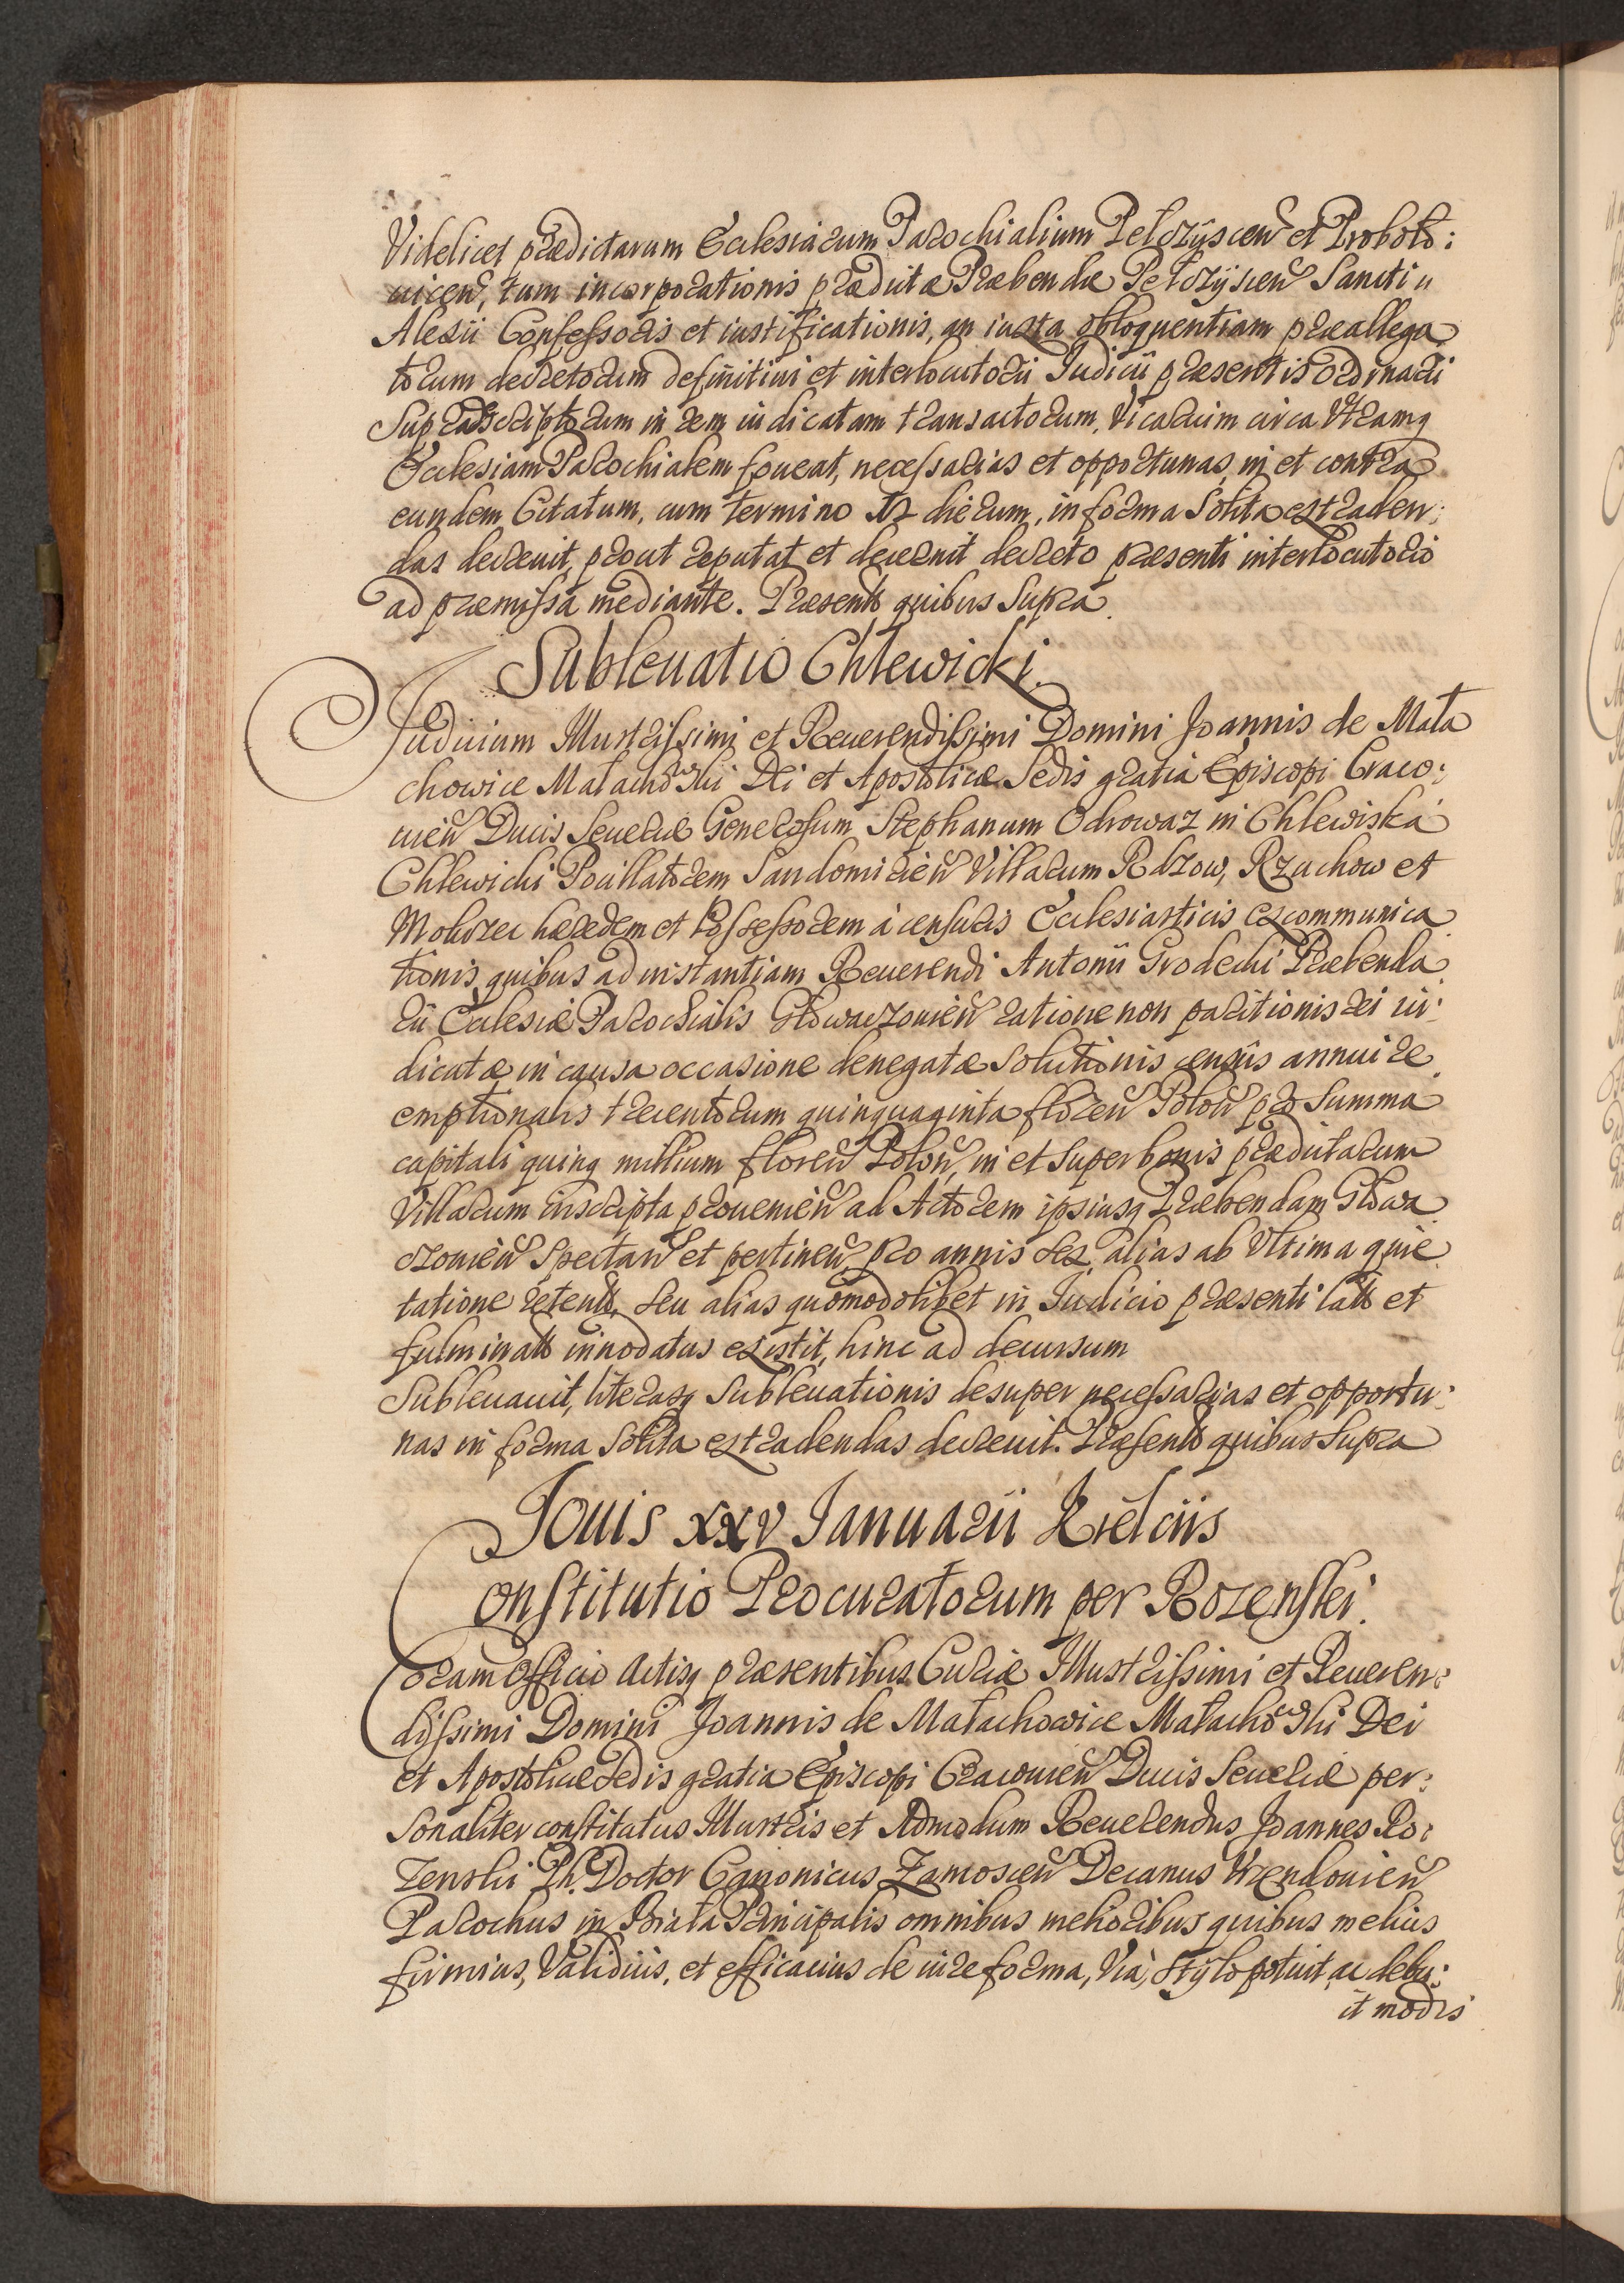 Videlicet praedictarum Ecclesiarum Parochialium Pelczyscen et Proboło:
uicen, tum incorporationis praedictae Praebendae Pelczyscen Sancti
Alexii Confessoris et iustificationis, an iuxta obloquentiam praeallega
torum decretorum definitiui et interlocutorii Iudicii praesentis Ordinarii
Suprascriptorum in rem iudicatam transactorum, Vicarium circa Vtramq
Ecclesiam Parochialem foueat, necessarias et opportunas, in et contra
eundem Citatum, cum termino 12 dierum, in forma Solita extraden:
das decreuit, prout reputat et decernit decreto praesenti interlocutorio
ad praemissa mediante. Praesentb quibus Supra
Subleuatio Chlewicki.
Iudicium Illustrissimi et Reuerendissimi Domini Joannis de Mała
chowice Małachowski Dei et Apostolicae Sedis gratia Episcopi Craco:
uien Ducis Seueriae Generosum Stephanum Odrowaz in Chlewiska
Chlewicki Pocillatorem Sandomirien Villarum Rdzow, Rzuchow et
haeredem et Possessorem à censuris Ecclesiasticis excommunica
tionis quibus ad instantiam Reuerendi Antonii Grodecki Praebenda
rii Ecclesiae Parochialis Głowaczouien ratione non paritionis rei iu:
dicatae in causa occasione denegatae Solutionis censûs annui re
emptionalis trecentorum quinquaginta floren Polon pro Summa
capitali quinq millium floren Polon, in et Super bonis praedictarum
Villarum inscripta prouenien ad Actorem ipsiusq Praebendam Głowa
czouien Spectan et pertinen, pro annis Sex, alias ab Vltima quie
tatione retentb, Seu alias quomodolibet in Iudicio praesenti latb et
fulminatb innodatus existit, hinc ad decursum
Subleuauit, literasq Subleuationis desuper necessarias et opportu:
nas in forma Solita extradendas decreuit. Praesentb quibus Supra
Jouis xxv Ianuarii Kielciis
Constitutio Procuratorum per Rozenski.
Coram Officio Actisq praesentibus Curiae Illustrissimi et Reueren:
dissimi Domini Joannis de Małachowice Małachowski Dei
et Apostolicae Sedis gratia Episcopi Cracouien Ducis Seueriae per:
Sonaliter constitutus Illustris et Admodum Reuerendus Joannes Ro:
zenski Ph. Doctor Canonicus Zamoscen Decanus Vrzendouien
Parochus in Biała Principalis omnibus melioribus quibus melius
firmius, Validius, et efficacius de iure forma, Viâ, Stylo potuit ac debu:
it modis